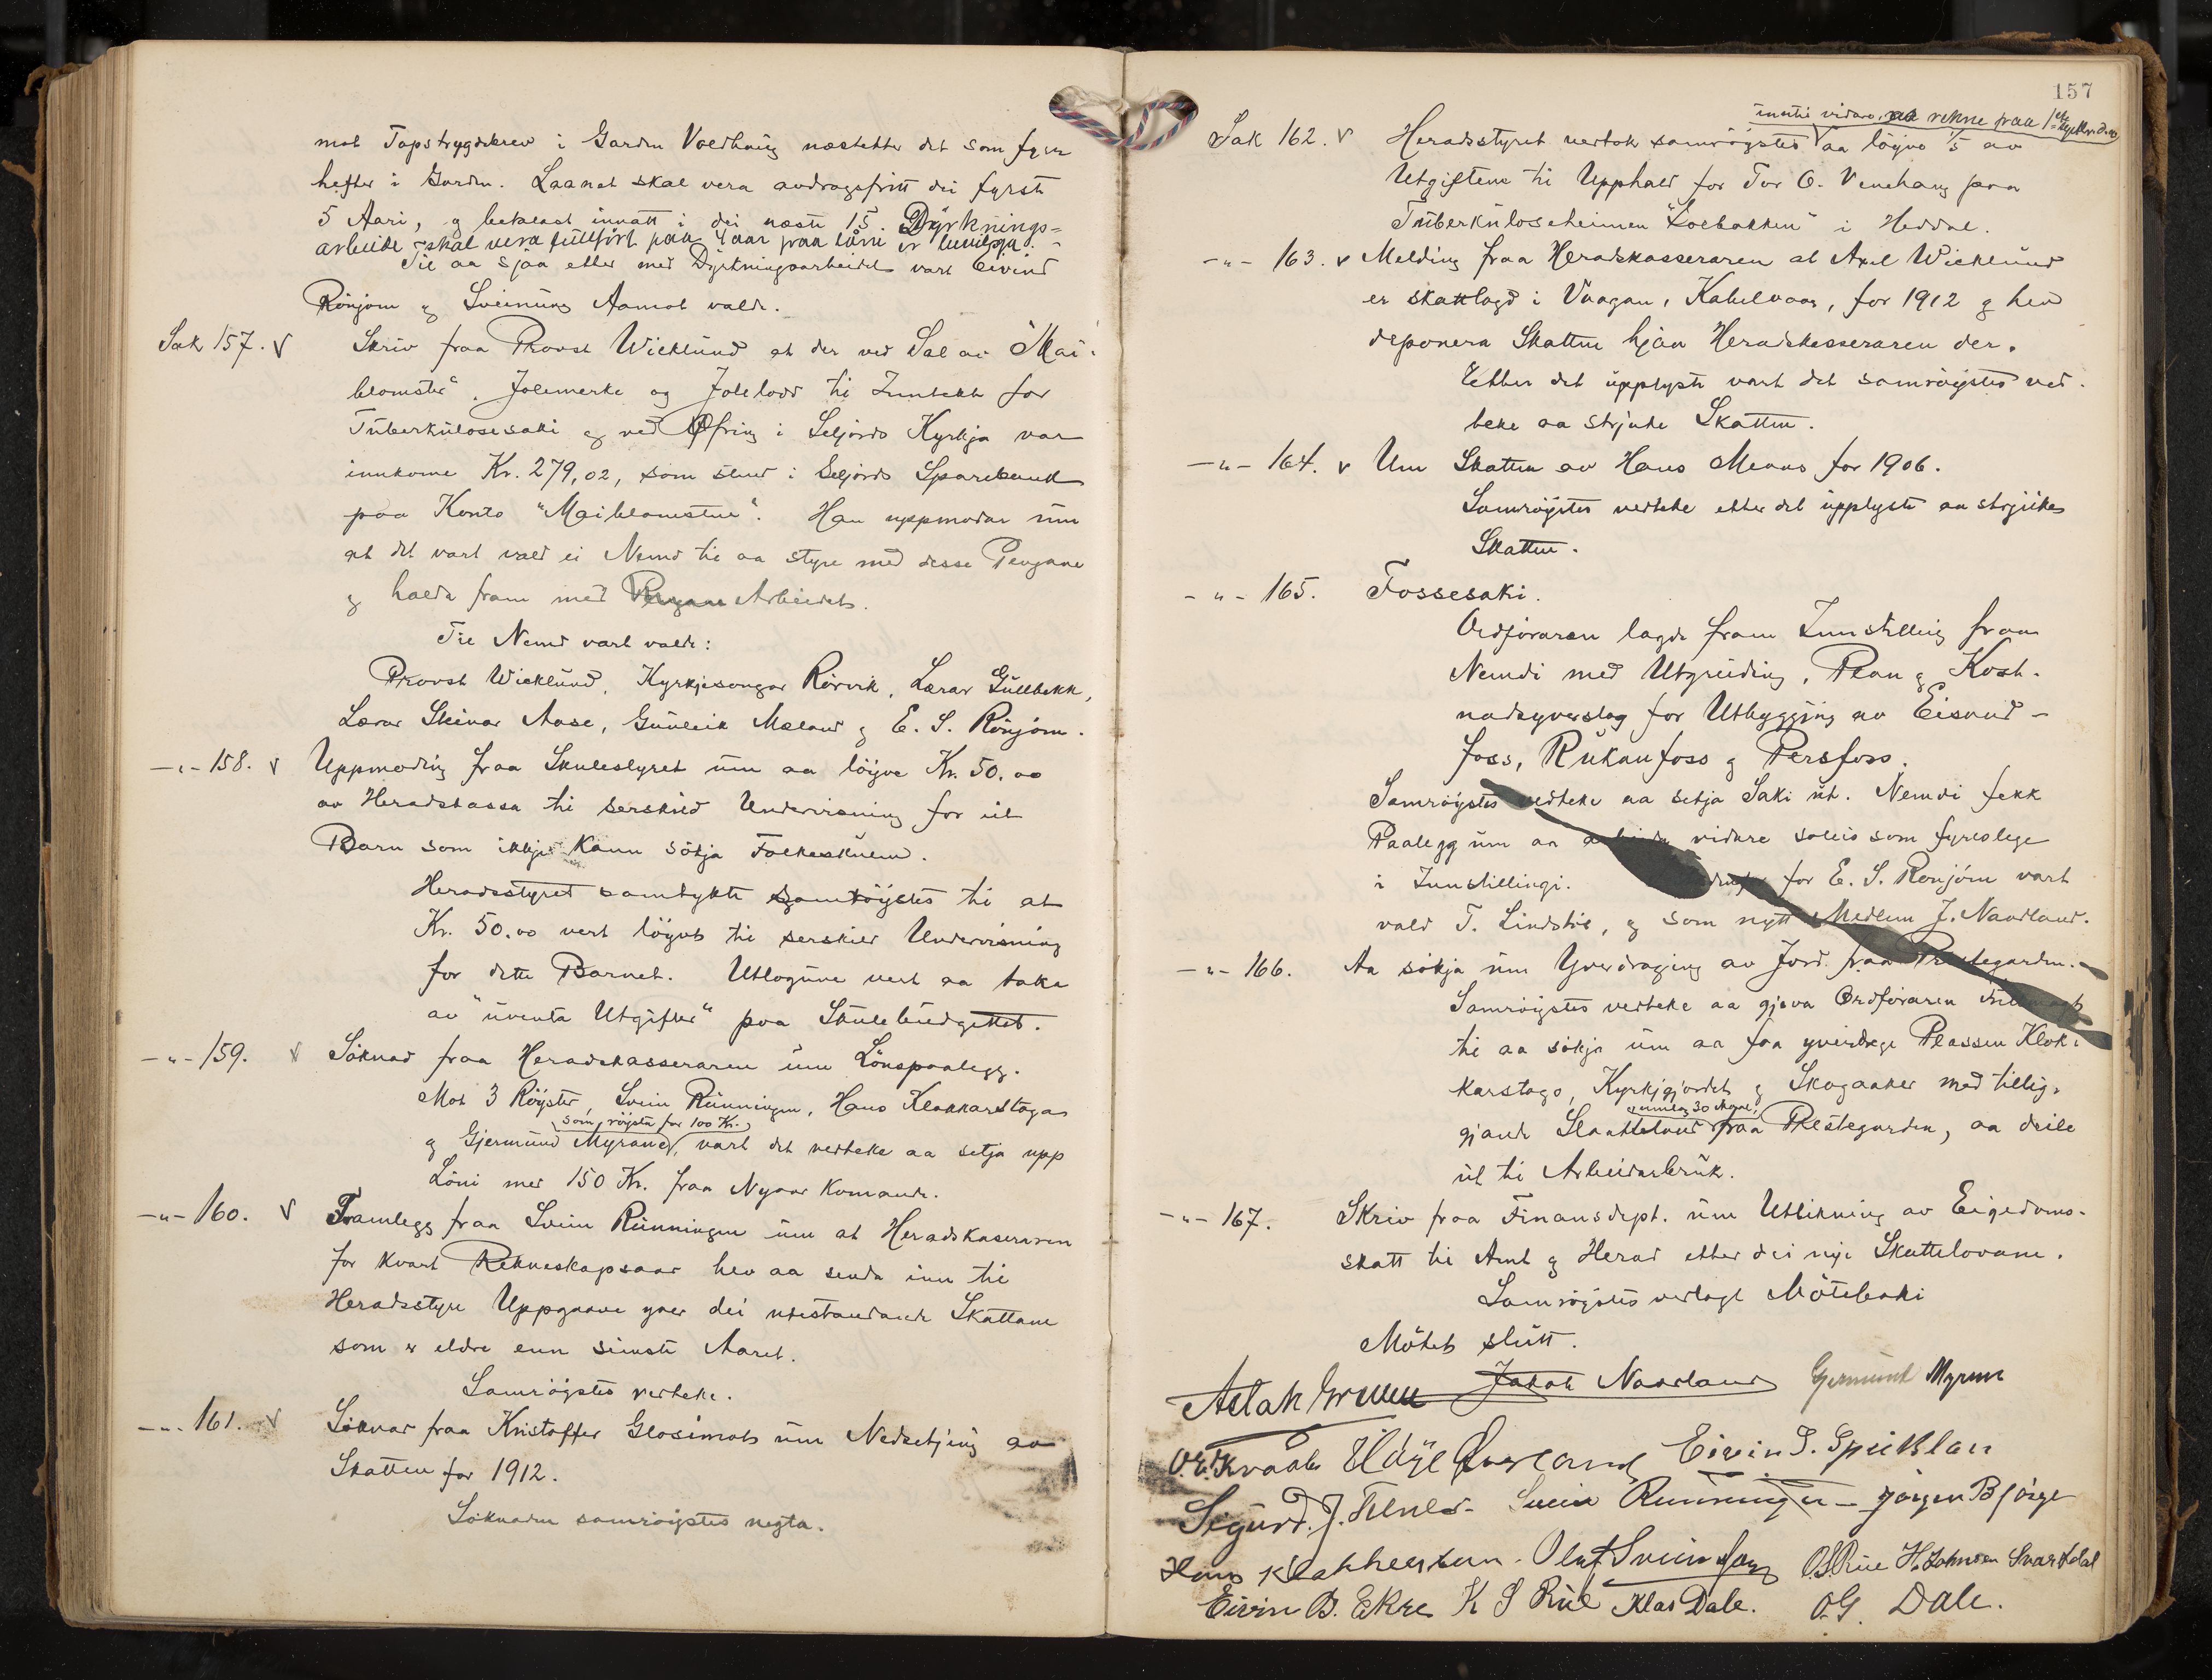 mot Tapstrygdebrev i Garden Voldhaug næstetter det som fyrr
hefter i Garden. Laanet skal vera avdragsfritt dei fyrste
5 Aari, og betalast innatt i dei næste 15. Dyrknings-
arbeide skal vera fullført paa 4 aar fraa låni er bevilga.
Til aa sjaa etter med Dyrkningsarbeidet vart Eivind
Rönjom og Sveinung Aamot valde.
Sak 157. v Skriv fraa Provst Wicklund at der ved Sal av "Mai-
blomster", Jolemerke og Jolelodd til Inntekt for
Tuberkulosesaki og ved Ofring i Seljords Kyrkja var
innkome Kr. 279,02, som stend i Seljords Sparebank
paa Konto "Maiblomstne". Han uppmodar um
at det vart vald ei Nemd til aa styre med desse Pengane
og halda fram med Arbeidet.
Til Nemd vart valde:
Provst Wicklund, Kyrkjesongar Rörvik, Lærar Gullbekk,
Lærar Steinar Aase, Gunleik Mæland og E. S. Rönjom.
-"- 158. v Uppmoding fraa Skulestyret um aa löyve Kr. 50.00
av Heradskassa til serskild Undervisning for eit
Barn som ikkje kann sökja Folkeskulen.
Heradsstyret samtykte samröystes til at
Kr. 50.00 vert löyvt til serskild Undervisning
for dette Barnet. Utlogune vert aa taka
av "uventa Utgifter" paa Skulebudgettet.
-"- 159. v Söknad fraa Heradskasseraren um Lönspaalegg.
Mot 3 Röyster, Svein Rünningen, Hans Klokkarstoga
som röyste for 100 Kr.
og Gjermund Myrane, vart det vedteke aa setja upp
Löni med 150 Kr. fraa Nyaar komande.
-"- 160. v Framlegg fraa Svein Rünningen um at Heradskaseraren
for kvart Rekneskapsaar hev aa senda inn til
Heradsstyre Uppgaave yver dei utestandande Skattane
som er eldre enn siste Aaret.
Samröystes vedteke.
-"- 161. v Söknad fraa Kristoffer Glosimot um Nedsetjing av
Skatten for 1912.
Söknaden samröystes negta.
157
inntil vidare, aa rekne fraa 1ste
Sak 162. v Heradsstyret vedtok samröystes aa löyve 1/5 av
Utgiftene til Upphald for Tor O. Venehaug paa
Tuberkuloseheimen "Solbakken" i Heddal.
-"- 163. v Melding fraa Heradskasseraren at Axel Wicklund
er skattlagd i Vaagan, Kabelvaag, for 1912 og hev
deponera Skatten hjaa Heradskasseraren der.
Etter det upplyste vart det samröystes ved-
teke aa stryke Skatten.
-"- 164. v Um Skatten av Hans Meaas for 1906.
Samröystes vedteke etter det upplyste aa stryke
Skatten.
-"- 165. Fossesaki.
Ordföraren lagde fram Innstilling fraa
Nemdi med Utgreiding, Plan og Kost-
nadsyverslag for Utbyggjing av Eisand-
foss, Rukanfoss og Persfoss.
Samröystes vedteke aa setja Saki ut. Nemdi fekk
Paalegg um aa arbeida vidare soleis som fyreslege
i Innstillingi. for E. S. Rönjom vart
vald T. Lindstöl, og som nytt Medlem J. Naadland.
-"- 166. Aa sökja um Yverdraging av Jord fraa Prestegarden.
Samröystes vedteke aa gjeva Ordföraren Fullmagt
til aa sökja um aa faa yverdrage Plassen Klok-
karstogo, Kyrkjejordet og Skogaaker med tillig-
umlag 30 Maal,
gjande Slaatteland fraa Prestegarden, aa deile
ut til Arbeidarbruk.
-"- 167. Skriv fraa Finansdept. um Utlikning av Eigedoms-
skatt til Amt og Herad etter dei nye Skattelovane.
Samröystes vedtaget Möteboki
Mötet slutt.
Aslak Jakob Naadland Gjermund Myrane
O. E. Kvaale Øverland Eivin S. Speiklan
Sigurd. J. Svein Rünningen Jörgen Bjöige
Hans Klokkerstun. Olaf Sveinsson O. S. Rue H. Johnsen Svartdal
Eivin B. Ekre K S Rue Klas Dale. O. G. Dale.